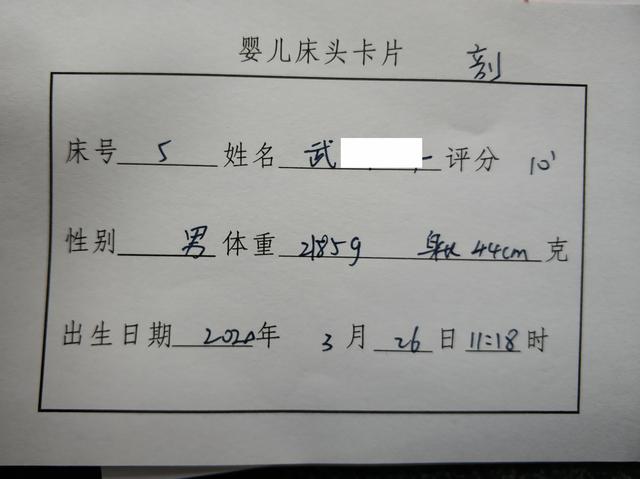 婴儿床头卡片 剖
床号 5 姓名 武 评分 10'
性别 男 体重 2185g 身长 44cm 克
出生日期 2020年 3月 26日 11:18时